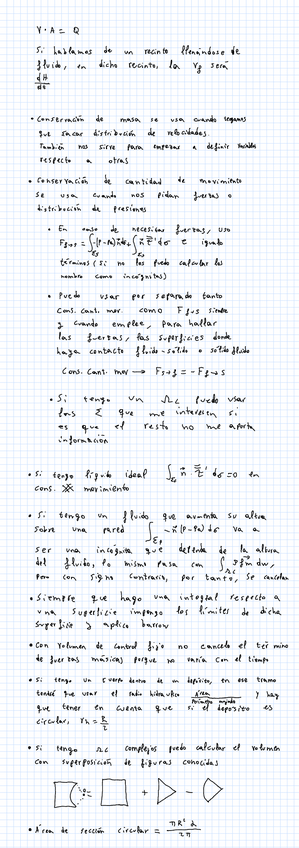 V · A = Q
Si hablamos de un recinto llenándose de
fluido, en dicho recinto, la Vf será
dH
dt
• Conservación de masa se usa cuando tengamos
que sacar distribución de velocidades.
También nos sirve para empezar a definir variables
respecto a otras
• Conservación de cantidad de movimiento
se usa cuando nos pidan fuerzas o
distribución de presiones
• En caso de necesitar fuerzas, uso
F = ∫ -(P-Pa) n dσ + ∫ n τ' dσ e igualo
términos (si no los puedo calcular los
nombro como incógnitas)
• Puedo usar por separado tanto
Cons. cant. mov. como F f→s siempre
y cuando emplee, para hallar
las fuerzas, las superficies donde
haya contacto fluido-sólido o sólido fluido
Cons. Cant. mov → F s→f = - F f→s
• Si tengo un Ωc puedo usar
los Σ que me interesen si
es que el resto no me aporta
información
• Si tengo líquido ideal ∫ n τ' dσ = 0 en
cons. movimiento
• Si tengo un fluido que aumenta su altura
sobre una pared ∫ -n (P-Pa) dσ va a
ser una incógnita que dependa de la altura
del fluido, lo mismo pasa con ∫ ρ fm dω,
pero con signo contrario, por tanto, se cancelan
• Siempre que hago una integral respecto a
una superficie impongo los límites de dicha
superficie y aplico barrow
• Con Volumen de control fijo no cancelo el término
de fuerzas másicas porque no varía con el tiempo
• Si tengo un cuerpo dentro de un depósito, en ese tramo
tendré que usar el radio hidráulico Área / Perímetro mojado y hay
que tener en cuenta que si el depósito es
circular, rh = R/2
• Si tengo Ωc complejos puedo calcular el volumen
con superposición de figuras conocidas
= + -
• Área de sección circular = πR² α / 2π